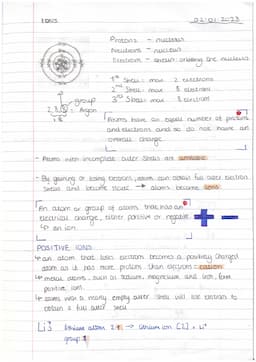 IONS
02·01·2023
Protons - nucleus
Neutrons - nucleus
Electrons - shells orbiting the nucleus
1st Shell: max 2 electrons
2nd Shell: max 8 electrons
3rd Shell: max 8 electrons
group
2.8.8 = Argon
18
Atoms have an equal number of protons
and electrons and so do not have an
overall charge
- Atoms with incomplete outer shells are unstable
- By gaining or losing electrons, atoms can obtain full outer electron
shells and become stable → atoms become ions
An atom or group of atoms that has an
electrical charge, either positive or negative
↳ an ion
+ -
POSITIVE IONS
↳ an atom that loses electrons becomes a positively charged
atom as it has more protons than electrons = cation
↳ metal atoms, such as sodium, magnesium and iron, form
positive ions.
↳ atoms with a nearly empty outer shell will lose electrons to
obtain a full outer shell
Li 3 lithium atom 2.1 → lithium ion [2]+ Li+
group 1